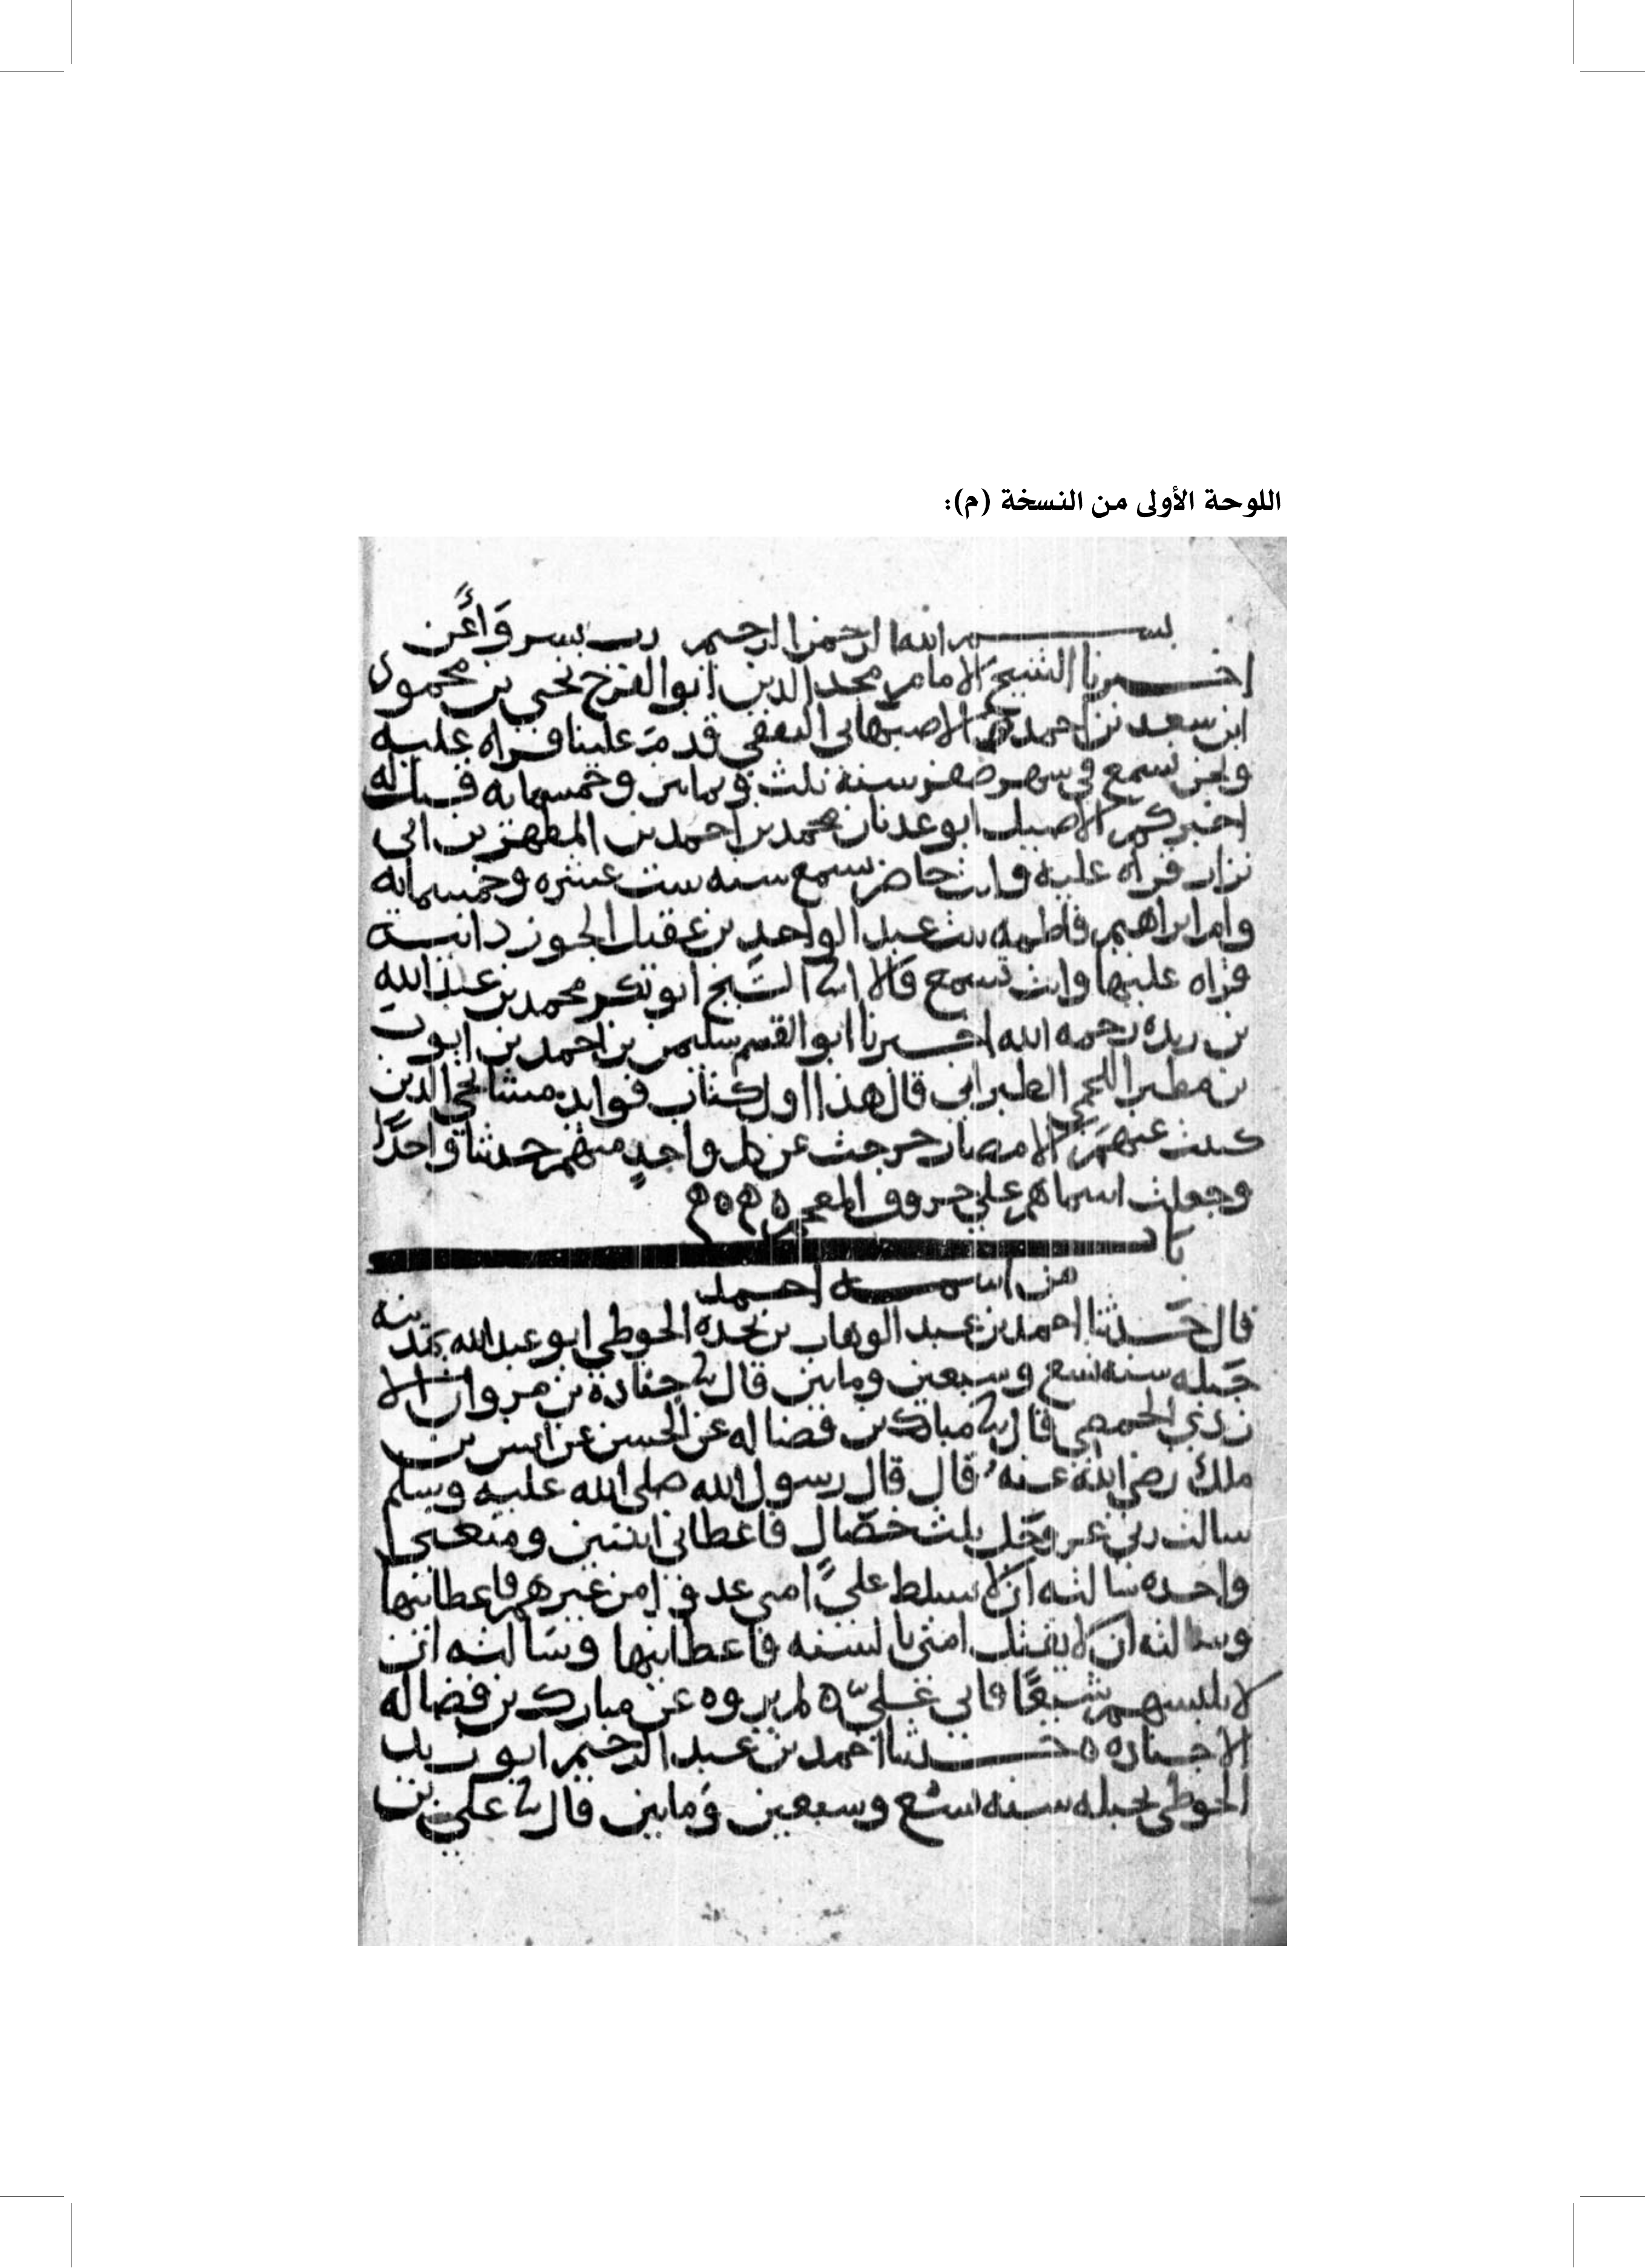 اللوحة الأولى من النسخة (م):
بسم الله الرحمن الرحيم رب يسر وأعن
اخبرنا الشيخ الامام مجد الدين ابو الفرج يحيى بن محمود
ابن سعد بن احمد الاصبهاني الثقفي قدم علينا قراه عليه
ونحن نسمع في شهر صفر سنة ثلث وثمانين وخمسمايه قيل له
اخبركم الاصيل ابو عدنان محمد بن احمد بن المطهر بن ابي
نزار قراه عليه وانت حاضر تسمع سنه ست عشره وخمسمايه
وام ابراهيم فاطمه بنت عبد الواحد بن عقيل الجوزدانية
قراه عليها وانت تسمع قالا ابنا الشيخ ابو بكر محمد بن عبد الله
بن ريده رحمه الله اخبرنا ابو القسم سليمن بن احمد بن ايوب
بن مطير اللخمي الطبراني قال هذا اول كتاب فوايد مشايخي الذين
كتبت عنهم بالامصار خرجت عن كل واحد منهم حديثا واحدا
وجعلت اسماهم على حروف المعجم ه ه
باب
من اسمه احمد
قال حدثنا احمد بن عبد الوهاب بن نجده الحوطي ابو عبد الله بمدينه
جبله سنه تسع وسبعين ومايتين قال ثنا جنادة بن مروان الا
زدي الحمصي قال ثنا مبارك بن فضاله عن الحسن عن انس بن
ملك رضي الله عنه قال قال رسول الله صلى الله عليه وسلم
سالت ربي عز وجل ثلث خصال فاعطاني اثنتين ومنعني
واحده سالته ان لا يسلط على امتي عدوا من غيرهم فاعطانيها
وسالته ان لا يقتل امتي بالسنه فاعطانيها وسالته ان
لا يلبسهم شيعا فابى علي ه لم يروه عن مبارك بن فضاله
الا جناده ه حدثنا احمد بن عبد الرحيم ابو زيد
الحوطي بجبله سنه تسع وسبعين ومايتين قال ثنا علي بن